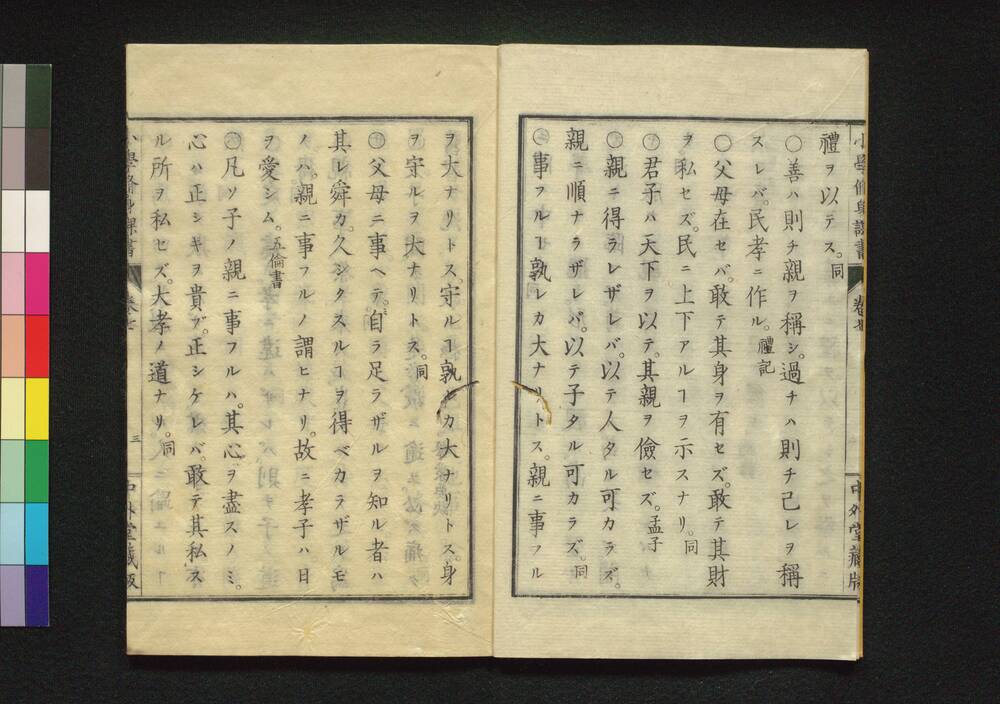 小學修身課書
卷七
中外堂藏版
禮ヲ以テス。同
〇善ハ則チ親ヲ稱シ。過チハ則チ己レヲ稱
スレバ。民孝ニ作ル。禮記
〇父母在セバ。敢テ其身ヲ有セズ。敢テ其財
ヲ私セズ。民ニ上下アルヿヲ示スナリ。同
〇君子ハ天下ヲ以テ。其親ヲ儉セズ。孟子
〇親ニ得ラレザレバ。以テ人タル可カラズ。
親ニ順ナラザレバ。以テ子タル可カラズ。同
〇事フルヿ孰レカ大ナリトス。親ニ事フル
ヲ大ナリトス。守ルヿ孰レカ大ナリトス。身
ヲ守ルヲ大ナリトス。同
〇父母ニ事ヘテ。自ラ足ラザルヲ知ル者ハ
其レ舜カ。久シクスルヿヲ得ベカラザルモ
ノハ。親ニ事フルノ謂ヒナリ。故ニ孝子ハ日
ヲ愛シム。五倫書
〇凡ソ子ノ親ニ事フルハ。其心ヲ盡スノミ。
心ハ正シキヲ貴ブ。正シケレバ。敢テ其私ス
ル所ヲ私セズ。大孝ノ道ナリ。同
小學修身課書
卷七
三
中外堂藏版